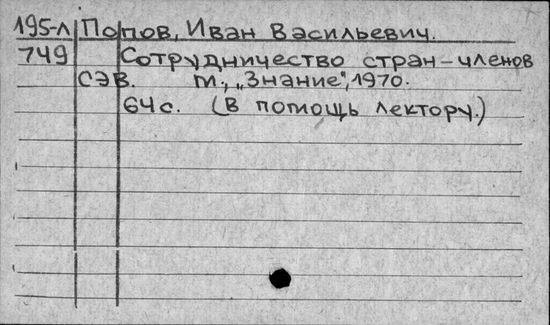 195-л Попов, Иван Васильевич.
749 Сотрудничество стран-членов
СЭВ. М., „Знание", 1970.
64 с. (В помощь лектору.)